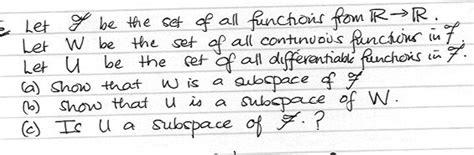 Let 𝓕 be the set of all functions from ℝ→ℝ.
Let W be the set of all continuous functions in 𝓕.
Let U be the set of all differentiable functions in 𝓕.
(a) Show that W is a subspace of 𝓕
(b) Show that U is a subspace of W.
(c) Is U a subspace of 𝓕.?